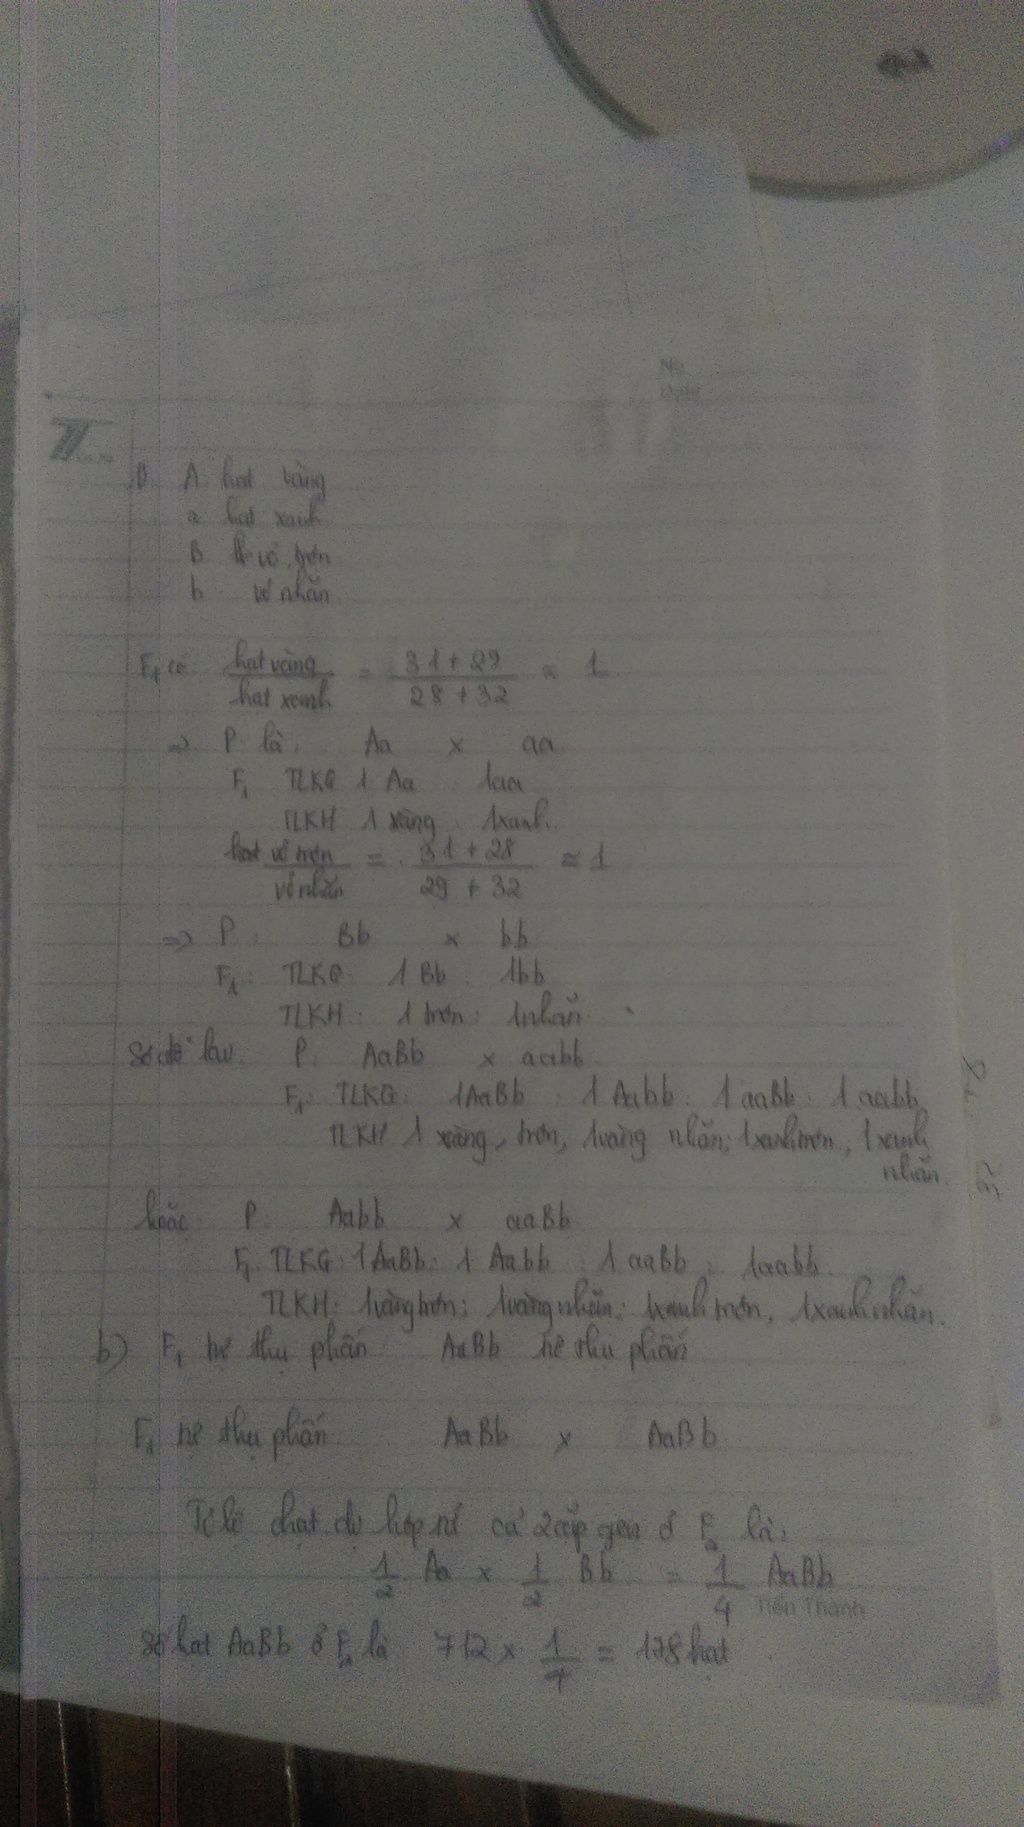 No
Date
A hạt vàng
a hạt xanh
B vỏ trơn
b vỏ nhăn
F₁ có hạt vàng / hạt xanh = 31 + 29 / 28 + 32 ≈ 1
=> P là: Aa x aa
F₁ TLKG 1 Aa : 1aa
TLKH 1 vàng : 1xanh.
hạt vỏ trơn / vỏ nhăn = 31 + 28 / 29 + 32 ≈ 1
=> P: Bb x bb
F₁: TLKG: 1 Bb : 1bb
TLKH: 1 trơn : 1nhăn
Sơ đồ lai P: AaBb x aabb
F₁: TLKG: 1AaBb : 1 Aabb : 1 aaBb : 1 aabb
TLKH 1 vàng, trơn, 1vàng nhăn, 1xanh trơn, 1xanh
nhăn.
hoặc: P: Aabb x aaBb
F₁ TLKG: 1 AaBb: 1 Aabb : 1 aaBb : 1aabb.
TLKH: 1vàng trơn: 1vàng nhăn: 1xanh trơn, 1xanh nhăn.
b) F₁ tự thụ phấn AaBb tự thụ phấn
F₁ tự thụ phấn AaBb x AaBb
Tỉ lệ hạt dị hợp tử cả 2 cặp gen ở F₂ là:
1/2 Aa x 1/2 Bb = 1/4 AaBb
Tiến Thành
Số hạt AaBb ở F₂ là 712 x 1/4 = 178 hạt